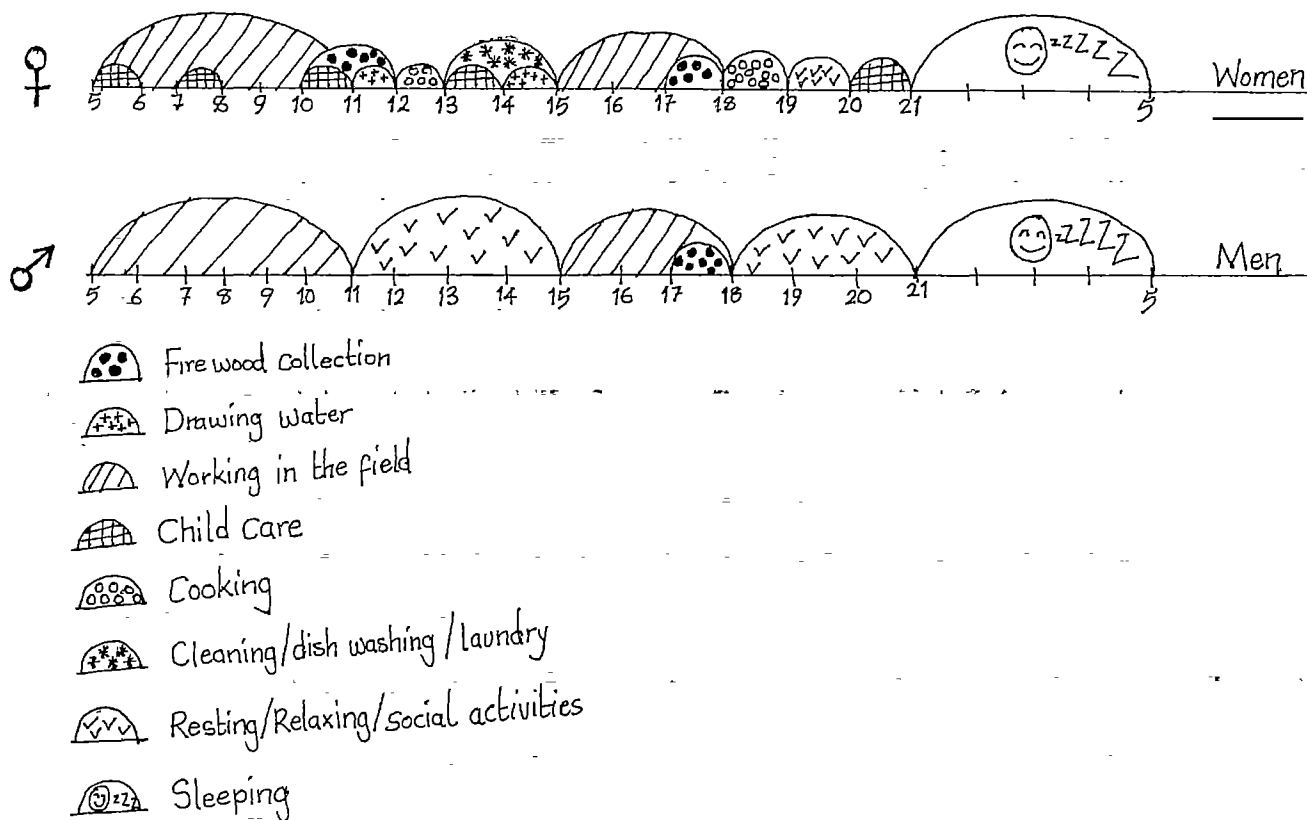 zzZZZZ
Women
5 6 7 8 9 10 11 12 13 14 15 16 17 18 19 20 21 5
zZZZZ
Men
5 6 7 8 9 10 11 12 13 14 15 16 17 18 19 20 21 5
Firewood collection
Drawing water
Working in the field
Child Care
Cooking
Cleaning/dish washing/laundry
Resting/Relaxing/social activities
zZZ Sleeping